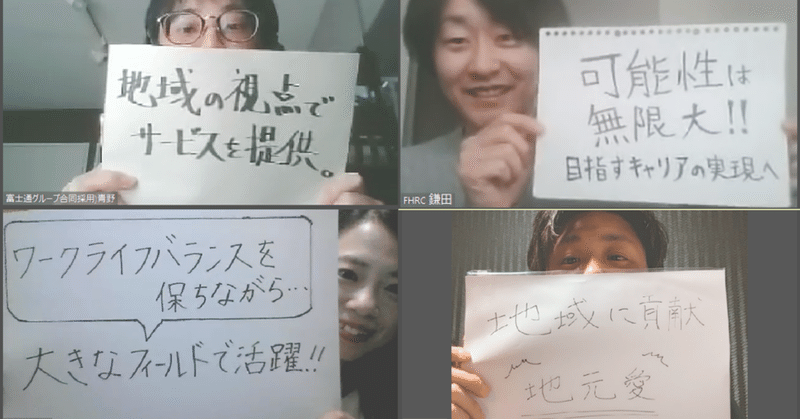 地域の視点で
サービスを提供。
富士通グループ合同採用)青野
可能性は
無限大!!
目指すキャリアの実現へ
FHRC 鎌田
ワークライフバランスを
保ちながら…
大きなフィールドで活躍!!
地域に貢献
地元愛